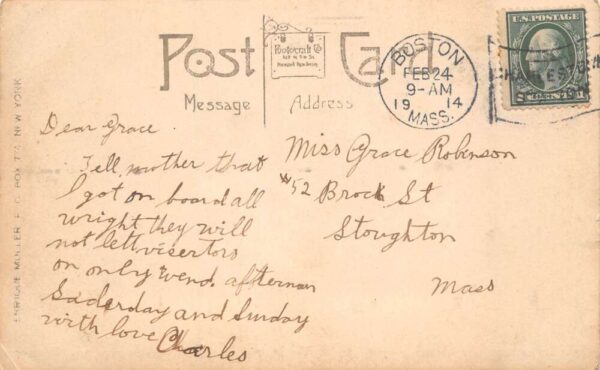 Post Card
Photocraft Co
Message
Address
BOSTON
FEB 24
9-AM
1914
MASS.
U.S. POSTAGE
Dear Grace.
Tell mother that
I got on board all
wright they will
not lett visertors
on only wend. afternun
Saderday and Sunday
with love Charles
Miss Grace Robinson
#52 Brock St
Stoughton
Mass
ENRIQUE MULLER, P. O. BOX 774, NEW YORK